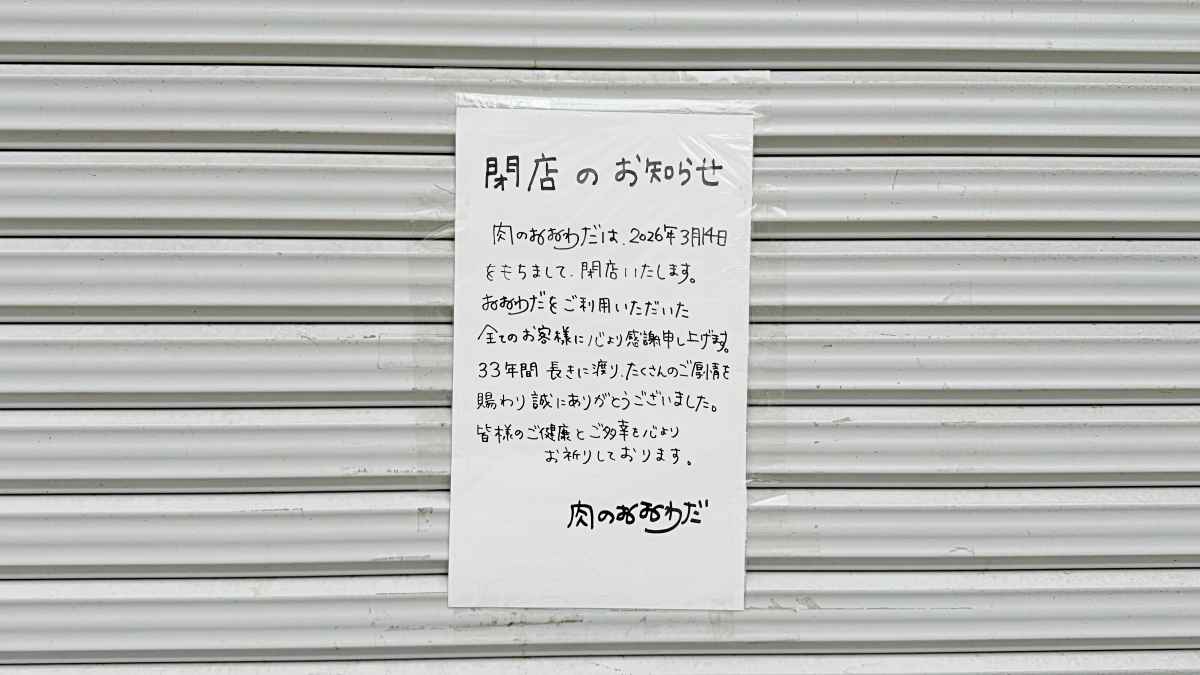 閉店のお知らせ
肉のおおわだは、2026年3月14日
をもちまして、閉店いたします。
おおわだをご利用いただいた
全てのお客様に心より感謝申し上げます。
33年間 長きに渡り、たくさんのご厚情を
賜わり誠にありがとうございました。
皆様のご健康とご多幸を心より
お祈りしております。
肉のおおわだ